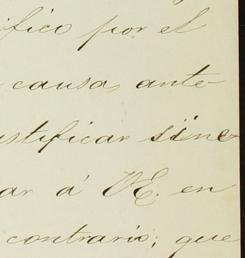 ifico por el
causa, ante-
ustificar sine
ar á V.E. en
contrario; que